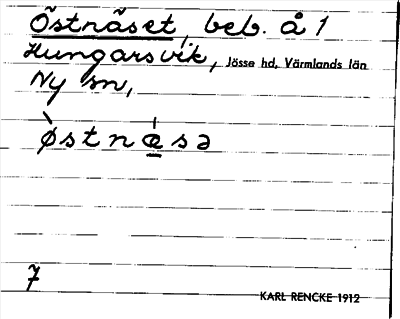 Östnäset, beb. å 1
Hungarsvik, Jösse hd, Värmlands län
Ny sn,
ø̀stnæ̲̍sə
7
KARL RENCKE 1912